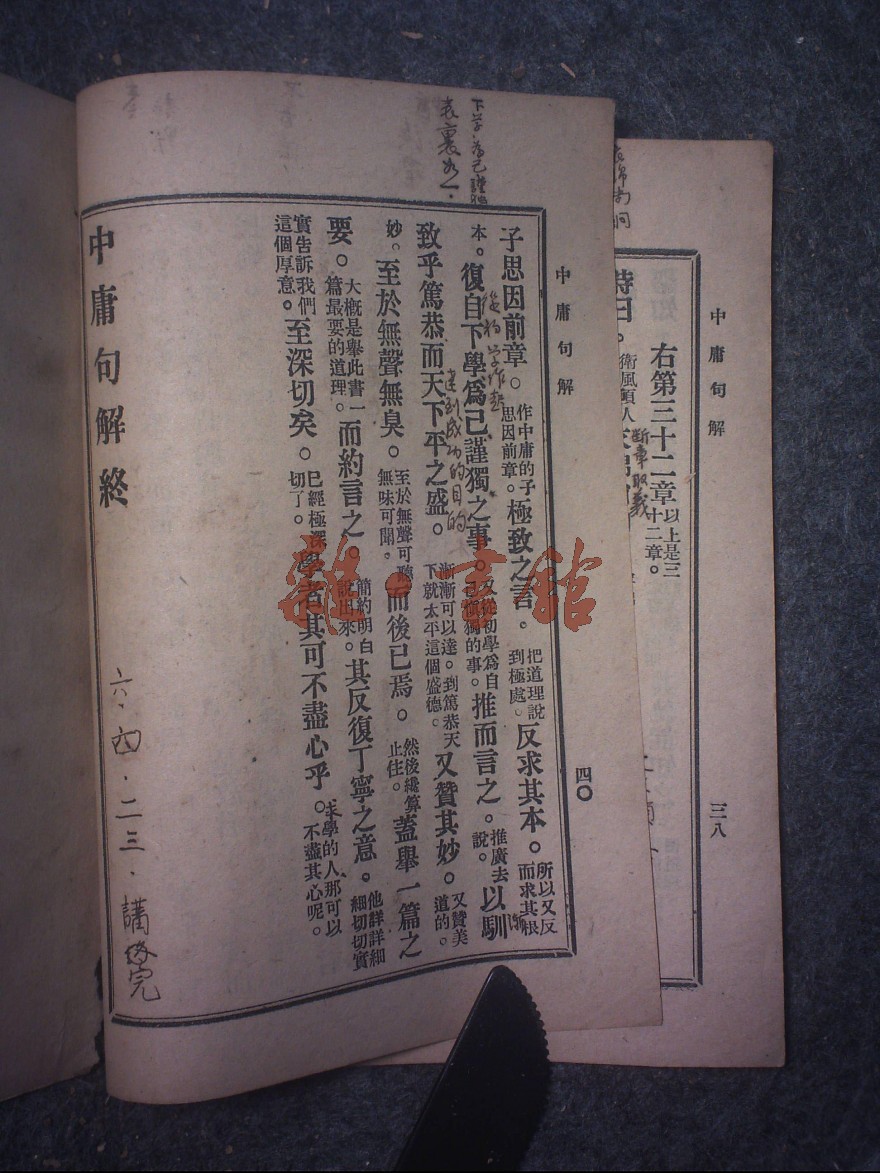 中庸句解
三八
右第三十二章以上是三十二章。
詩曰。衛風碩人
斷章取義
中庸句解
四〇
下学為己謹獨
表裏如一.
子思因前章。作中庸的子思因前章。極致之言。把道理說到極處。反求其本。所以又反而求其根
本。復自下學爲己謹獨之事。又從初學爲自己慎獨的事。推而言之。推廣去說。以馴
從初学作起
漸
致乎篤恭而天下平之盛。漸漸可以達。到篤恭天下就太平這個盛德。又贊其妙。又贊美道的。
達到成功的目的
妙。至於無聲無臭。至於無聲可聽無味可聞。而後已焉。然後纔算止住。蓋舉一篇之
要。大概是舉此書一篇最要的道理。而約言之。簡約明白說出來。其反復丁寧之意。他詳詳細細切切實
實告訴我們這個厚意。至深切矣。已經極深切了。學者其可不盡心乎。求學的人那可以不盡其心呢。
中庸句解終
六.四.二三.講終完
雜·書館